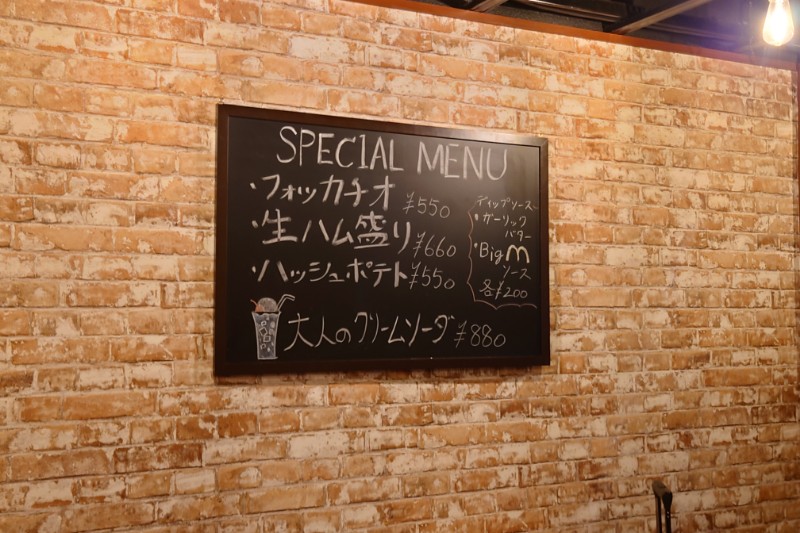 SPECIAL MENU
・フォッカチオ ¥550
・生ハム盛り ¥660
・ハッシュポテト ¥550
大人のクリームソーダ ¥880
ディップソース
・ガーリック
バター
・Big M
ソース
各¥200